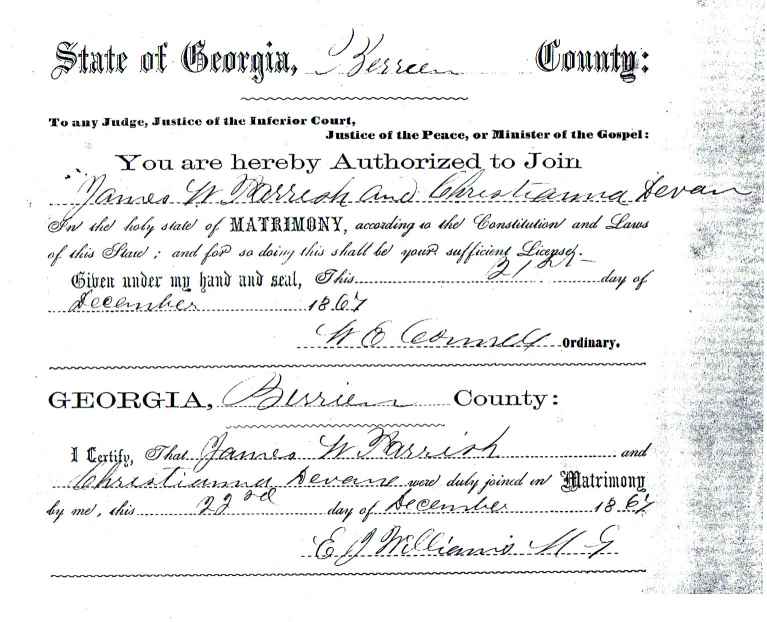 State of Georgia, Berrien County:
To any Judge, Justice of the Inferior Court,
Justice of the Peace, or Minister of the Gospel:
You are hereby Authorized to Join
James W Parrish and Christianna Devan
In the holy state of MATRIMONY, according to the Constitution and Laws
of this State; and for so doing this shall be your sufficient License.
Given under my hand and seal, This 21st day of
December 1867
W E Connell Ordinary.
GEORGIA, Berrien County:
I Certify, That James W Parrish and
Christianna Devane were duly joined in Matrimony
by me, this 22nd day of December 1867
E J Williams M G